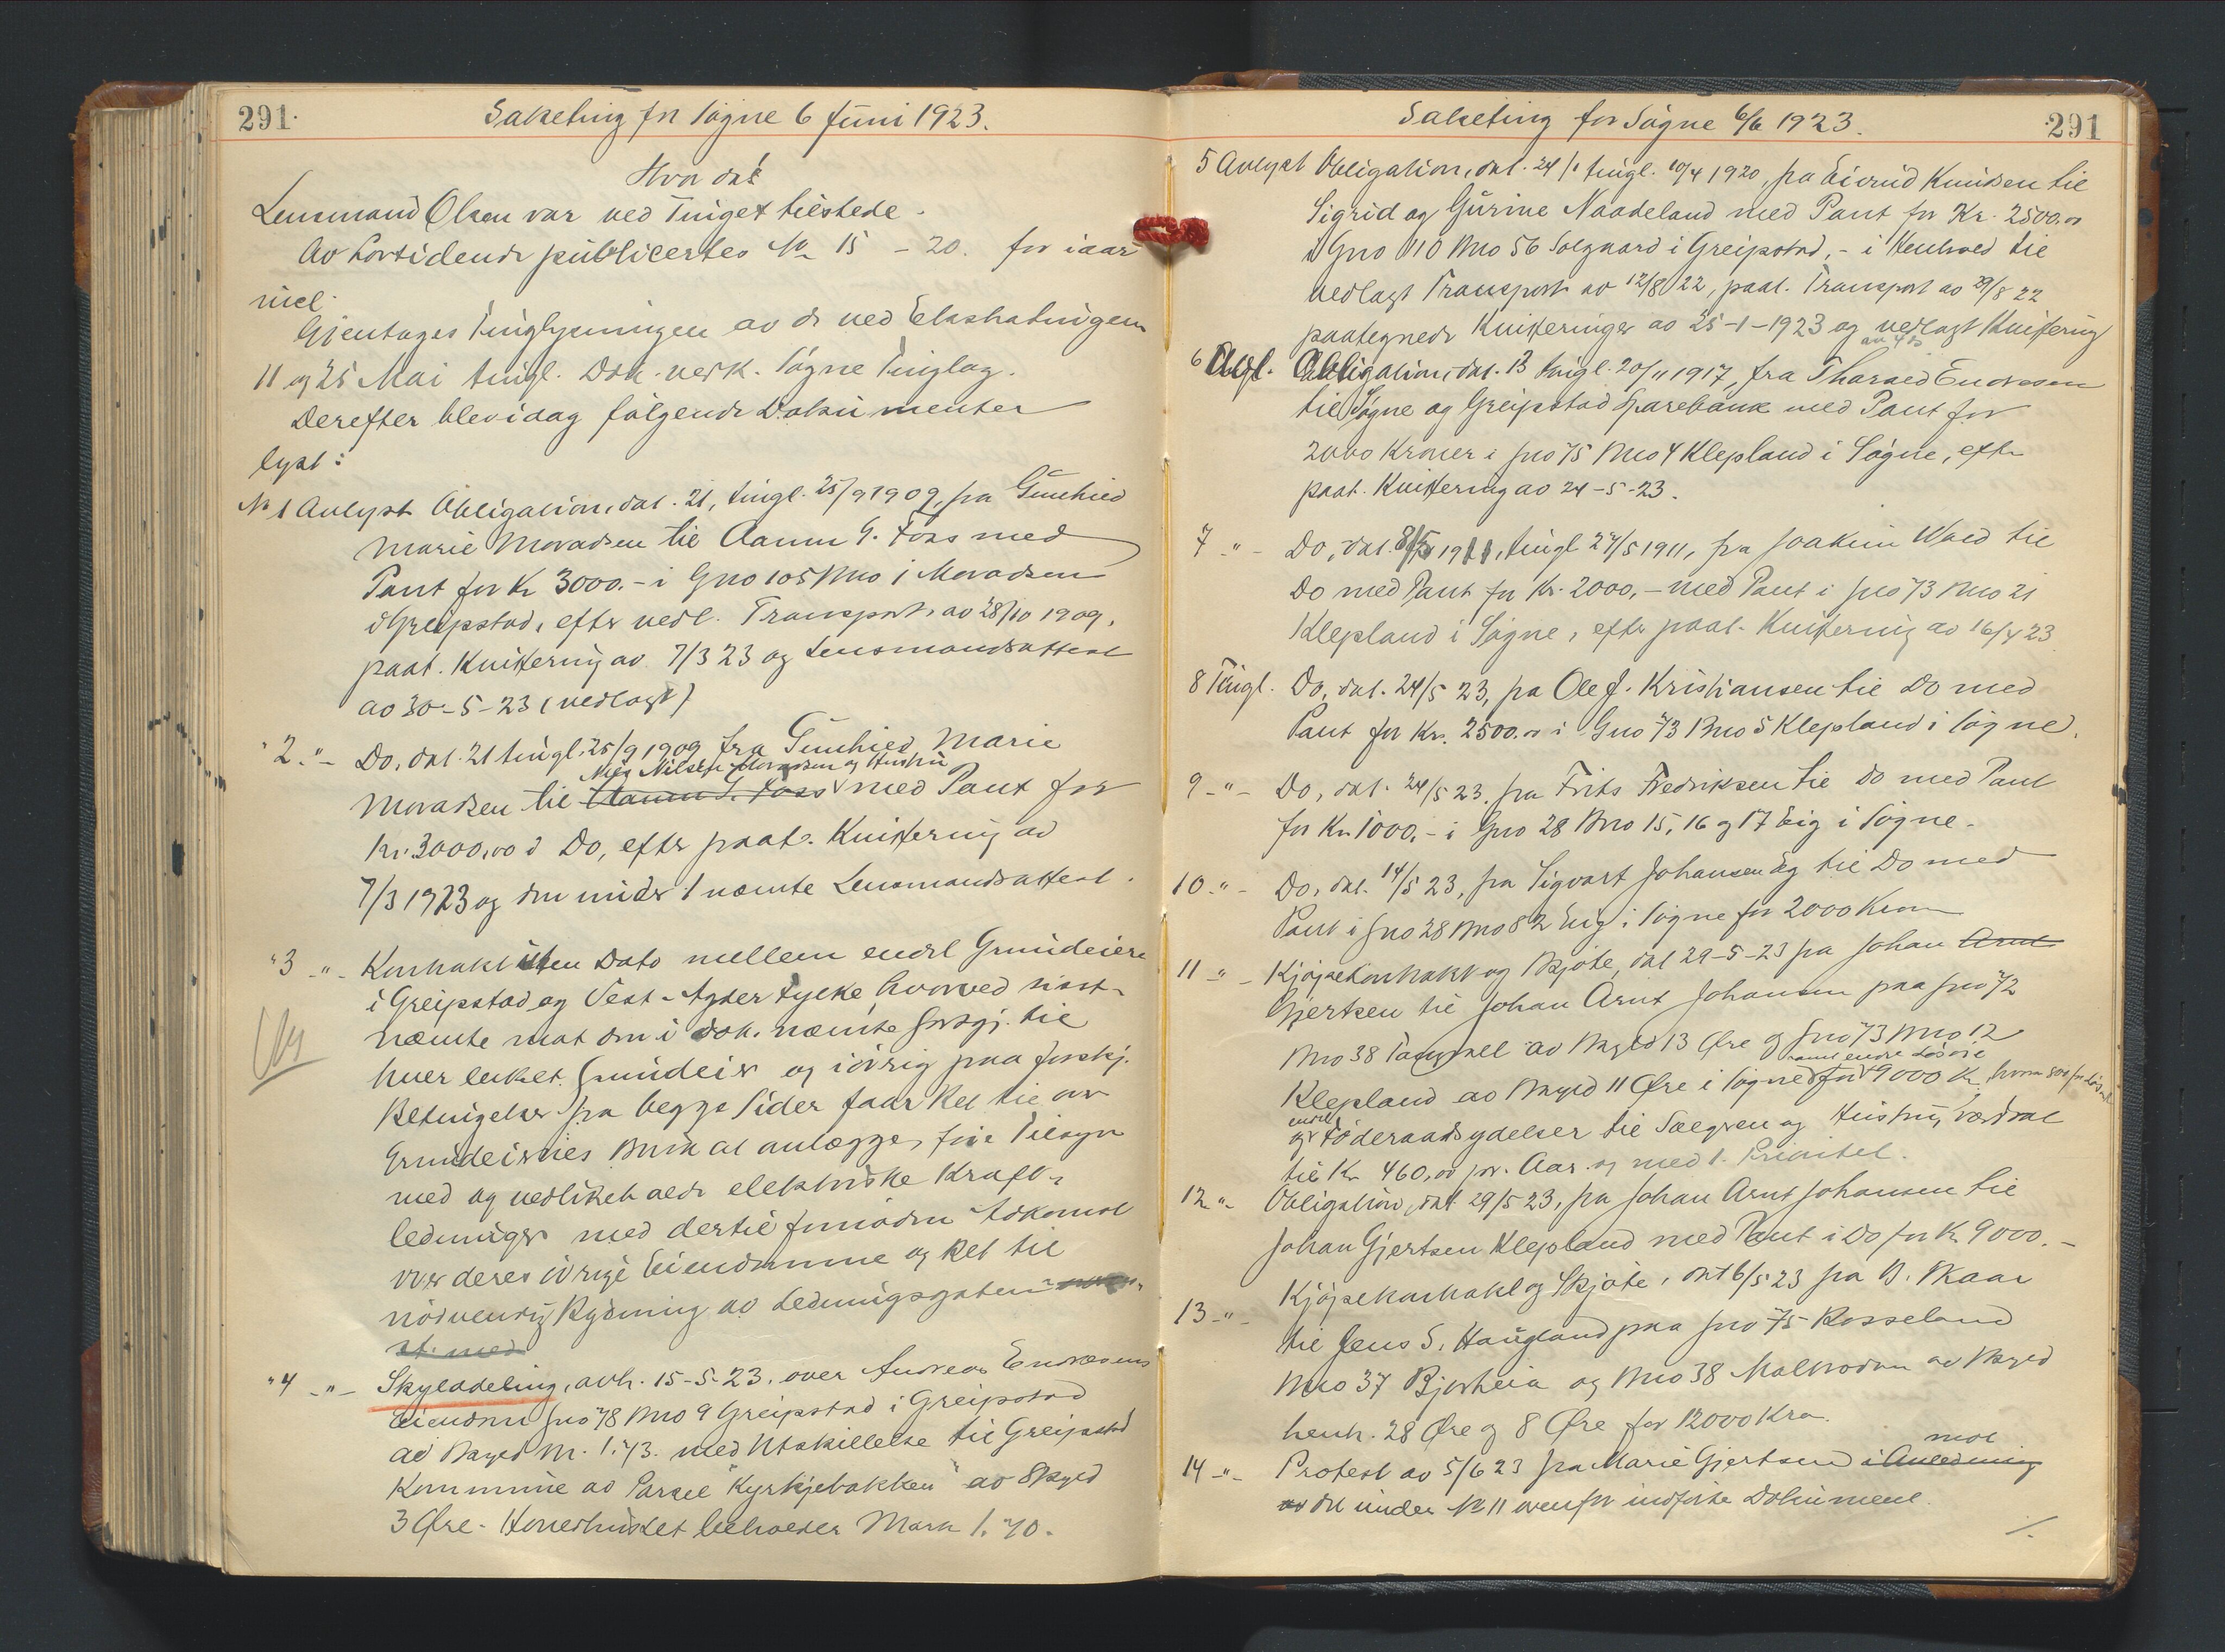 291.
Saketing for Søgne 6 Juni 1923.
Hvor da:
Lensmand Olsen var ved Tinget tilstede.
Av Lovtidende publicertes No 15 - 20. for iaar
Gjentages Tinglysningen av de ved Ekstratingene
11 og 25 Mai tingl. Dok. vedk. Søgne Tinglag.
Derefter blev idag følgende Dokumenter
lyst:
No 1 Avlyst Obligation, dat. 21, tingl. 25/9 1909, fra Gunhild
Marie Moradsen til Aanen G. Foss med
Pant for Kr 3000.- i Gno 105 Bno 1 Moradsen
i Greipstad, efter vedl. Transport av 28/10 1909,
paat. Kvittering av 7/3 23 og Lensmandsattest
av 30-5-23 (vedlagt)
" 2 "- Do, dat. 21 tingl. 25/9 1909 fra Gunhild Marie
Nils Nilsen Moradsen og Hustru
Moradsen til Aanen G. Foss med Pant for
Kr. 3000,00 i Do, efter paat. Kvittering av
7/3 1923 og den under 1 nævnte Lensmandsattest.
" 3 -"- Kontrakt uten Dato mellem endel Grundeiere
i Greipstad og Vest-Agder Fylke hvorved sidst-
nævnte mot den i Dok. nævnte Godtgj. til
hver enkelt Grundeier og iøvrig paa forskj.
Betingelser fra begge Sider faar Ret til over
Grundeiernes Bruk at anlægge, føre Tilsyn
med og vedlikeholde elektriske Kraft-
ledninger med dertil fornøden Adkomst
over deres øvrige Eiendomme og Ret til
nødvendig Rydning av Ledningsgaten
at med
" 4 -"- Skylddeling, avh. 15-5-23. over Andreas Endresens
Eiendom Gno 78 Bno 9 Greipstad i Greipstad
av Skyld M. 1.73. med Utskillelse til Greipstad
Kommune av Parsel "Kyrkjebakken" av Skyld
3 Øre. Hovedbruket beholder Mark 1.70.
Saketing for Søgne 6/6 1923.
291
5 Avlyst Obligation, dat. 24/1 tingl. 10/4 1920, fra Eivind Knudsen til
Sigrid og Gurine Naadeland med Pant for Kr. 2500.00
i Gno 110 Bno 56 Solgaard i Greipstad, - i Henhold til
vedlagt Transport av 12/8 22, paat. Transport av 29/8 22
paategnede Kvitteringer av 25-1-1923 og vedlagt Kvittering
6 Avl. Obligation, dat. 13 tingl. 20/11 1917, fra Tharald Endresen
til Søgne og Greipstad Sparebank med Pant for
2000 Kroner i Gno 75 Bno 4 Klepland i Søgne, efter
paat. Kvittering av 24-5-23.
7 -"- Do, dat. 8/5 1911, tingl 27/5 1911, fra Joakim Wold til
Do med Pant for Kr. 2000,- med Pant i Gno 73 Bno 21
Klepland i Søgne, efter paat. Kvittering av 16/4 23
8 Tingl. Do, dat. 24/5 23, fra Ole J. Kristiansen til Do med
Pant for Kr. 2500.00 i Gno 73 Bno 5 Klepland i Søgne.
9 -"- Do, dat. 24/5 23. fra Frits Fredriksen til Do med Pant
for Kr. 1000.- i Gno 28 Bno 15, 16 og 17 Eig i Søgne.
10 -"- Do, dat. 14/5 23, fra Sigvart Johansen Eg til Do med
Pant i Gno 28 Bno 82 Eig i Søgne for 2000 Kroner
11 -"- Kjøpekontrakt og Skjøte, dat 29-5-23 fra Johan Arnt
Gjertsen til Johan Arnt Johansen paa Gno 72
Bno 38 Tangvall av Skyld 13 Øre og Gno 73 Bno 12
samt endel Løsøre
Klepland av Skyld 11 Øre i Søgne for 9000 Kr, hvorav 500 for Løsøret
endel
og Føderaadsydelser til Sælgeren og Hustru, værdsat
til Kr 460,00 pr. Aar og med 1. Prioritet.
12 "- Obligation, dat 29/5 23, fra Johan Arnt Johansen til
Johan Gjertsen Klepland med Pant i Do for Kr. 9000.-
13 -"- Kjøpekontrakt og Skjøte, dat 6/5 23 fra B. Skaar
til Jens S. Haugland paa Gno 75 Rosseland
Bno 37 Bjorheia og Bno 38 av Skyld
henh. 28 Øre og 8 Øre for 12000 Kro.
14 -"- Protest av 5/6 23 fra Marie Gjertsen i Anledning
mot
av det under No 11 ovenfor indførte Dokument.